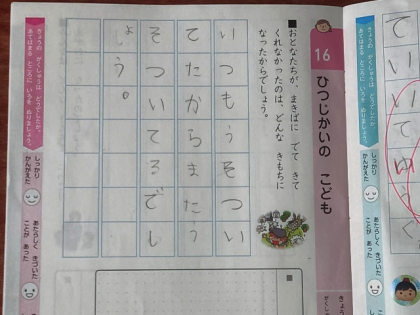 きょうの がくしゅうは どうでしたか。
あてはまる ところに いろを ぬりましょう。
しっかり
かんがえた
あたらしく きづいた
ことが あった
16 ひつじかいの こども
■おとなたちが、まきばに でて きて
くれなかったのは、どんな きもちに
なったからでしょう。
いつもうそつい
てたからまたう
そついてるでし
ょう。
きょうの がくしゅうは どうでしたか。
あてはまる ところに いろを ぬりましょう。
しっかり
かんがえた
あたらしく きづいた
ことが あった